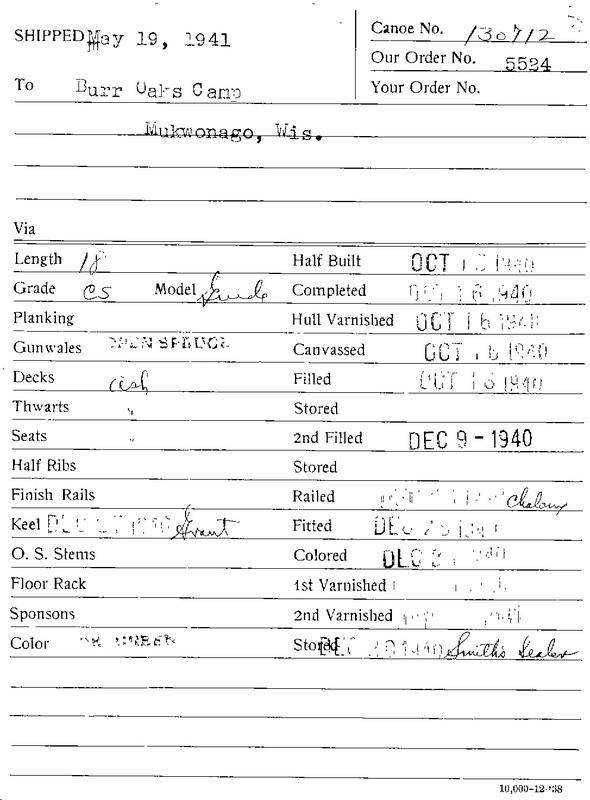 SHIPPED May 19, 1941
Canoe No. 130712
Our Order No. 5524
To Burr Oaks Camp
Your Order No.
Mukwonago, Wis.
Via
Length 18 Half Built OCT 1940
Grade CS Model Guide Completed 16 1940
Planking Hull Varnished OCT 16 1940
Gunwales OPEN SPRUCE Canvassed OCT 16 1940
Decks ash Filled OCT 1940
Thwarts " Stored
Seats " 2nd Filled DEC 9 - 1940
Half Ribs Stored
Finish Rails Railed
Keel DEC 1940 Grant Fitted DEC
O. S. Stems Colored DEC 1940
Floor Rack 1st Varnished
Sponsons 2nd Varnished
Color DK Stored DEC 1940 Smith's Sealer
10,000-12-'38